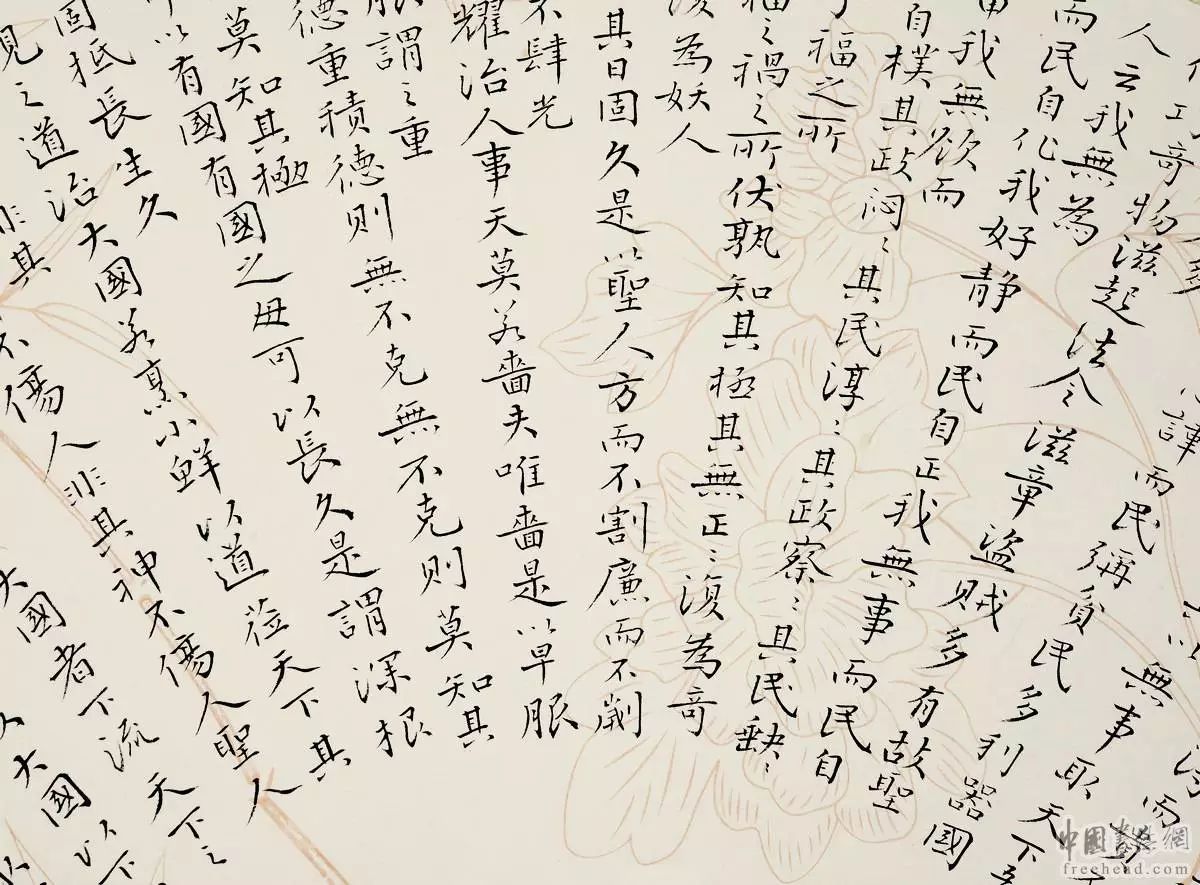 無事取天下
諱而民彌貧民多利器國
多
工奇物滋起法令滋章盜賊多有故聖
人云我無為
而民自化我好静而民自正我無事而民自
我無欲而
自樸其政悶〻其民淳〻其政察〻其民缺〻
福之所
福之禍之所伏孰知其極其無正〻復為奇
復為妖人
其日固久是以聖人方而不割廉而不劌
不肆光
耀治人事天莫若嗇夫唯嗇是以早服
服謂之重
德重積德則無不克無不克則莫知其
莫知其極
以有國有國之母可以長久是謂深根
固柢長生久
視之道治大國若烹小鮮以道莅天下其
非其
不傷人非其神不傷人聖人
大國者下流天下之
大國以下
中國書法網
freehead.com